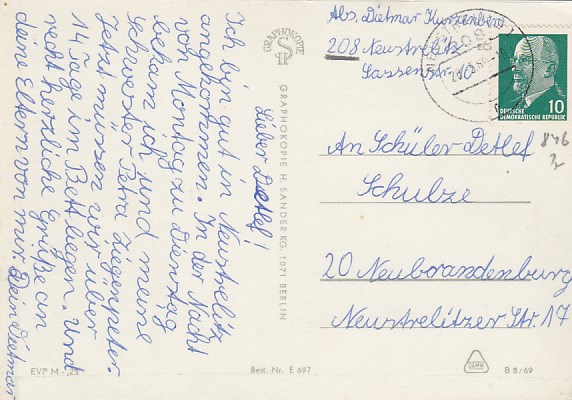 Lieber Detlef!
Ich bin gut in Neustrelitz
angekommen. In der Nacht
von Montag zu Dienstag
bekam ich und meine
Schwester Petra Ziegenpeter.
Jetzt müssen wir über
14 Tage im Bett liegen. Und
recht herzliche Grüße an
deine Eltern von mir. Dein Dietmar
EVP M -,25
GRAPHOKOPIE
GRAPHOKOPIE H. SANDER KG. 1071 BERLIN
Best. Nr. E 697
Abs. Dietmar Kurzenberg
208 Neustrelitz
Sassenstr. 10
10
DEUTSCHE
DEMOKRATISCHE REPUBLIK
An Schüler Detlef
Schulze
20 Neubrandenburg
Neustrelitzer Str. 17
846
B 8/69